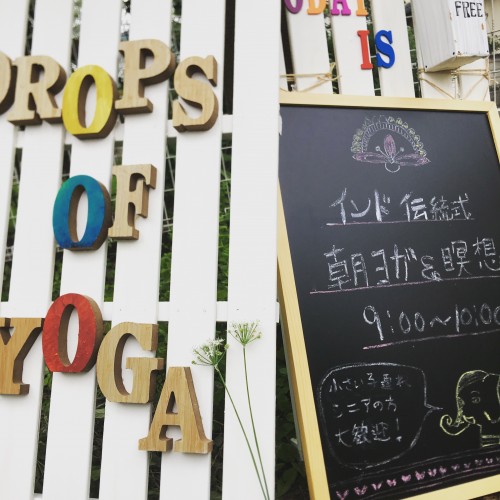 DROPS
OF
YOGA
ODAY
IS
FREE
インド伝統式
朝ヨガ&瞑想
9:00〜10:00
小さい子連れ
シニアの方
大歓迎!